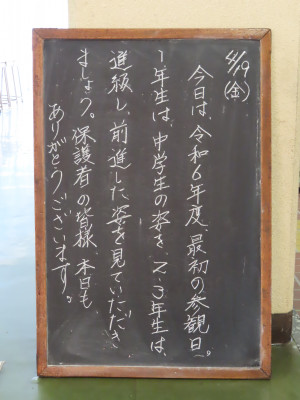 4/19(金)
今日は、令和6年度、最初の参観日。
1年生は、中学生の姿を、2・3年生は、
進級し、前進した姿を見ていただき
ましょう。保護者の皆様、本日も
ありがとうございます。